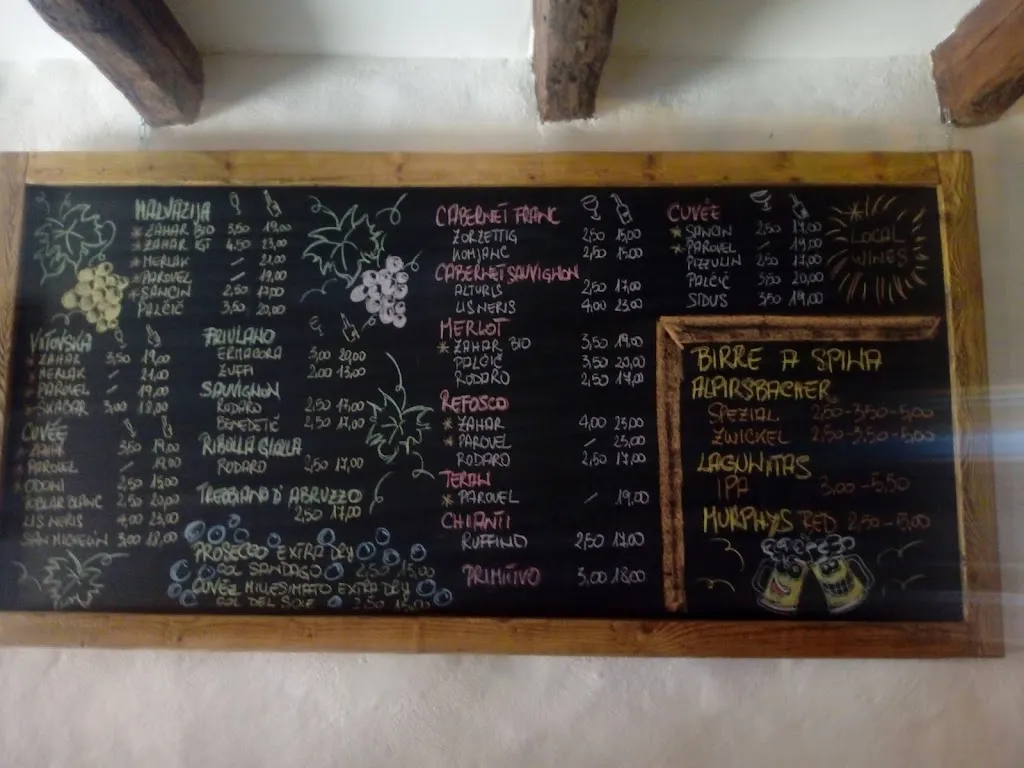 MALVAZIJA
* ZAHAR BIO 3,50 19,00
* ZAHAR IGT 4,50 23,00
* MERLAK / 21,00
* PAROVEL / 19,00
* SANCIN 2,50 17,00
PALČIČ 3,50 20,00
VITOVSKA
* ZAHAR 3,50 19,00
* MERLAK / 21,00
* PAROVEL / 19,00
* SKABAR 3,00 18,00
CUVÉE
* ZAHAR 3,50 19,00
* PAROVEL / 19,00
* ODONI 2,50 15,00
BLANC 2,50 20,00
LIS NERIS 4,00 23,00
SAN MICHELIN 3,00 18,00
FRIULANO
ERMACORA 3,00 20,00
ZUFFI 2,00 13,00
SAUVIGNON
RODARO 2,50 17,00
BENEDETIČ 2,50 17,00
RIBOLLA GIALLA
RODARO 2,50 17,00
TREBBIANO D'ABRUZZO
2,50 17,00
PROSECCO EXTRA DRY
COL SANDAGO 2,50 15,00
CUVÉE MILLESIMATO EXTRA DRY
COL DEL SOLE 2,50 15,00
CABERNET FRANC
ZORZETTIG 2,50 15,00
KOMJANC 2,50 15,00
CABERNET SAUVIGNON
ALTURIS 2,50 17,00
LIS NERIS 4,00 23,00
MERLOT
* ZAHAR BIO 3,50 19,00
PALČIČ 3,50 20,00
RODARO 2,50 17,00
REFOSCO
* ZAHAR 4,00 25,00
* PAROVEL / 25,00
RODARO 2,50 17,00
TERAN
* PAROVEL / 19,00
CHIANTI
RUFFINO 2,50 17,00
PRIMITIVO 3,00 18,00
CUVÉE
* SANCIN 2,50 17,00
* PAROVEL / 19,00
PIZZULIN 2,50 17,00
PALČIČ 3,50 20,00
SIDUS 3,50 19,00
* LOCAL
WINES
BIRRE A SPINA
ALPIRSBACHER
SPEZIAL 2,50-3,50-5,00
ZWICKEL 2,50-3,50-5,00
LAGUNITAS
IPA 3,00-5,50
MURPHYS RED 2,50-5,00